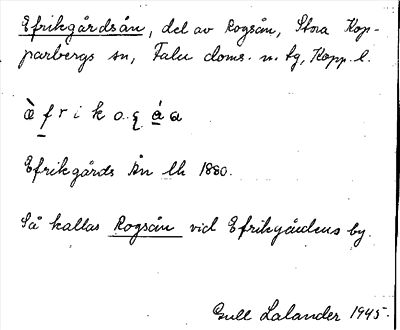 Efrikgårdsån, del av Rogsån, Stora Kop-
parbergs sn, Falu doms. n. tg, Kopp. l.
æ̀ f r i k o. g å a
Efrikgårds Ån lk 1880.
Så kallas Rogsån vid Efrikgårdens by.
Gull Lalander 1945.